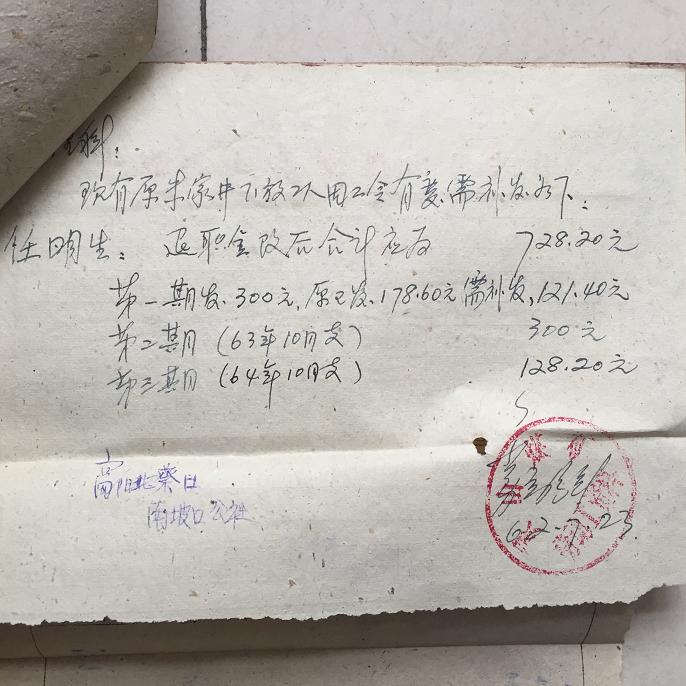 现有原朱家井下放工人用工令有变,需补发如下:
任明生: 退职金改后合计应为 728.20元
第一期发300元,原已发178.60元需补发,121.40元
第二期 (63年10月支) 300元
第三期 (64年10月支) 128.20元
62.7.23
南坡口公社